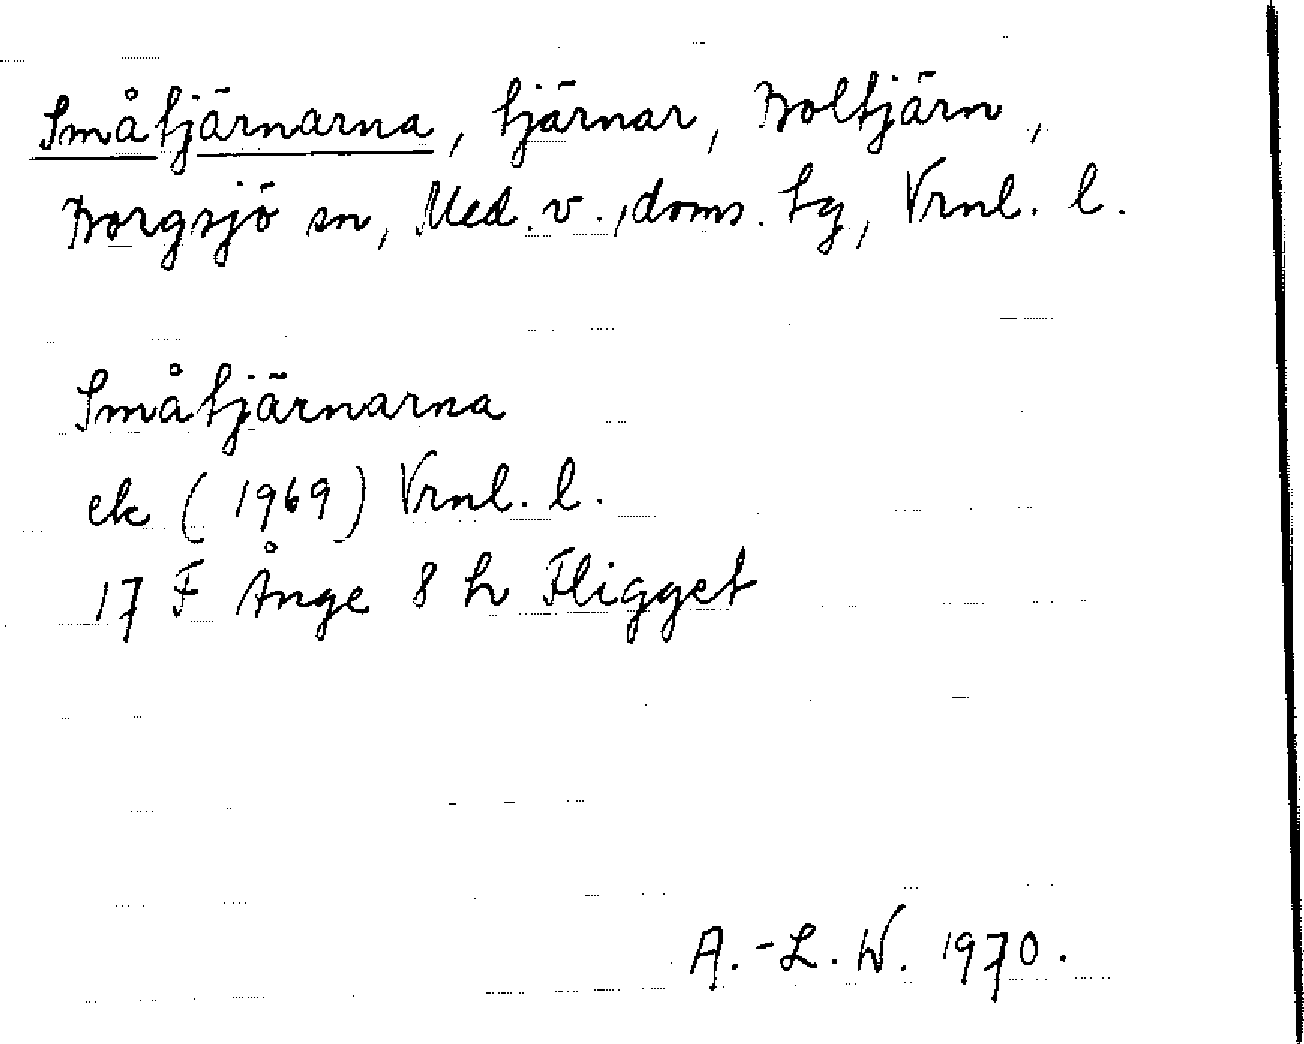 Småtjärnarna, tjärnar, Boltjärn,
Borgsjö sn, Med. v., doms. tg, Vrnl. l.
Småtjärnarna
ek (1969) Vrnl. l.
17 F Ånge 8 h Fligget
A.-L. W. 1970.